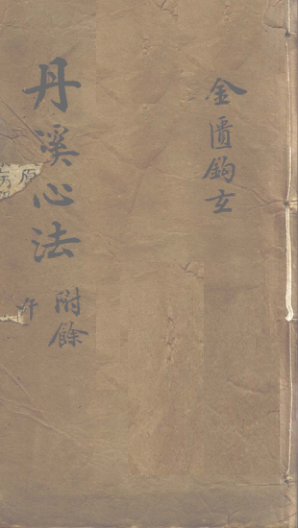 金匱鉤玄
丹溪心法
附餘